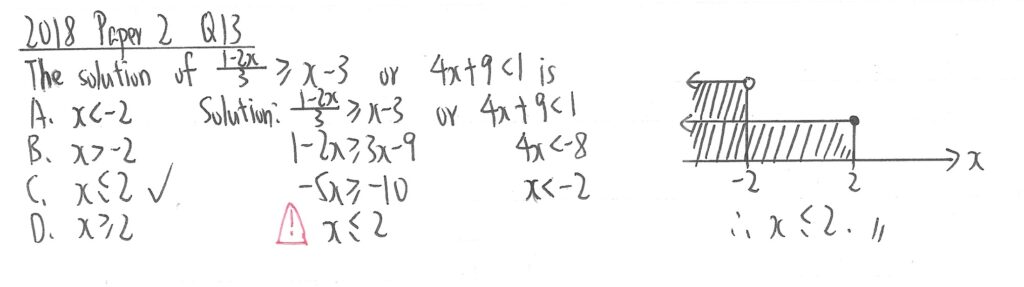 2018 Paper 2 Q13
The solution of (1-2x)/3 ≥ x-3 or 4x+9<1 is
A. x<-2
B. x>-2
C. x≤2 ✓
D. x≥2
Solution: (1-2x)/3 ≥ x-3 or 4x+9<1
1-2x≥3x-9 4x<-8
-5x≥-10 x<-2
! x≤2
-2 2 x
∴ x≤2. //